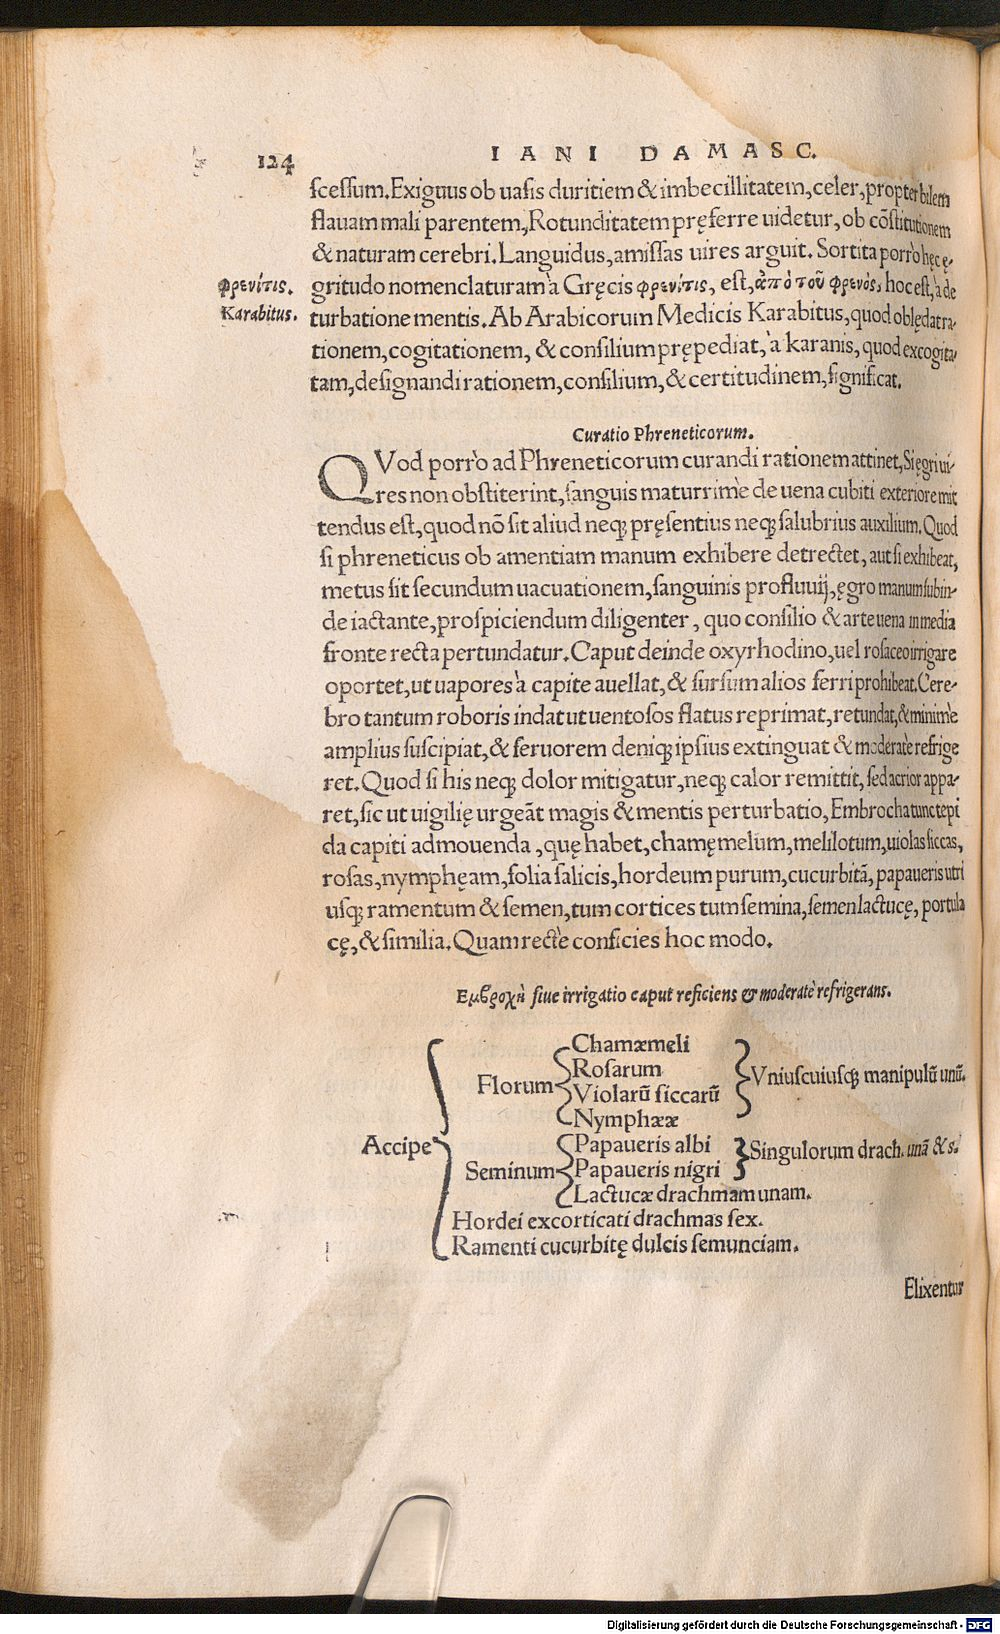 124
IANI DAMASC.
scessum. Exiguus ob uasis duritiem & imbecillitatem, celer, propter bilem
flauam mali parentem, Rotunditatem pręferre uidetur, ob cōstitutionem
& naturam cerebri. Languidus, amissas uires arguit. Sortita porrò hęc ę-
φρενίτις.
gritudo nomenclaturam à Gręcis φρενίτις, est, ἀπὸ τοῦ φρενὸς, hoc est, à de
Karabitus.
turbatione mentis. Ab Arabicorum Medicis Karabitus, quod oblędat ra-
tionem, cogitationem, & consilium prępediat, à karanis, quod excogita-
tam, designandi rationem, consilium, & certitudinem, significat.
Curatio Phreneticorum.
QVod porrò ad Phreneticorum curandi rationem attinet, Si ęgri ui-
res non obstiterint, sanguis maturrimè de uena cubiti exteriore mit
tendus est, quod nō sit aliud neq; pręsentius neq; salubrius auxilium. Quod
si phreneticus ob amentiam manum exhibere detrectet, aut si exhibeat,
metus sit secundum uacuationem, sanguinis profluuij, ęgro manum subin-
de iactante, prospiciendum diligenter, quo consilio & arte uena in media
fronte recta pertundatur. Caput deinde oxyrhodino, uel rosaceo irrigare
oportet, ut uapores à capite auellat, & sursum alios ferri prohibeat. Cere-
bro tantum roboris indat ut uentosos flatus reprimat, retundat, & minimè
amplius suscipiat, & feruorem deniq; ipsius extinguat & moderatè refrige
ret. Quod si his neq; dolor mitigatur, neq; calor remittit, sed acrior appa-
ret, sic ut uigilię urgeāt magis & mentis perturbatio, Embrocha tunc tepi
da capiti admouenda, quę habet, chamęmelum, melilotum, uiolas siccas,
rosas, nymphęam, folia salicis, hordeum purum, cucurbitā, papaueris utri
usq; ramentum & semen, tum cortices tum semina, semen lactucę, portula
cę, & similia. Quam rectè conficies hoc modo.
Εμβροχὴ siue irrigatio caput reficiens & moderatè refrigerans.
Accipe
Florum
Chamæmeli
Rosarum
Violarū siccarū
Nymphææ
Vniuscuiusq; manipulū unū.
Seminum
Papaueris albi
Papaueris nigri
Singulorum drach. unā & s.
Lactucæ drachmam unam.
Hordei excorticati drachmas sex.
Ramenti cucurbitę dulcis semunciam.
Elixentur
Digitalisierung gefördert durch die Deutsche Forschungsgemeinschaft - DFG